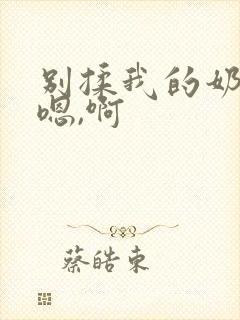 别揉我的奶
嗯,啊
蔡皓东